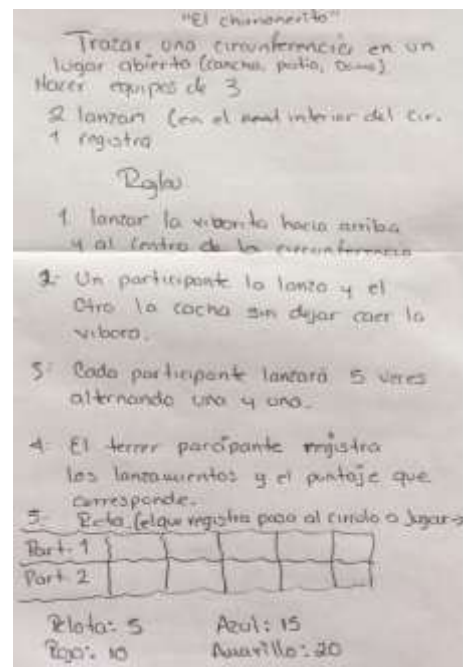 "El chinonerito"
Trazar una circunferencia en un
lugar abierto (cancha, patio, Domo)
Hacer equipos de 3
2 lanzan (en el interior del cir.
1 registra
Reglas
1 lanzar la viborita hacia arriba
y al centro de la circunferencia
2- Un participante la lanza y el
otro la cacha sin dejar caer la
vibora.
3- Cada participante lanzará 5 veces
alternando uno y uno.
4- El tercer parcipante registra
los lanzamientos y el puntaje que
corresponde.
5- Rota (el que registra pasa al circulo a jugar
Part. 1
Part. 2
Pelota: 5 Azul: 15
Rojo: 10 Amarillo: 20